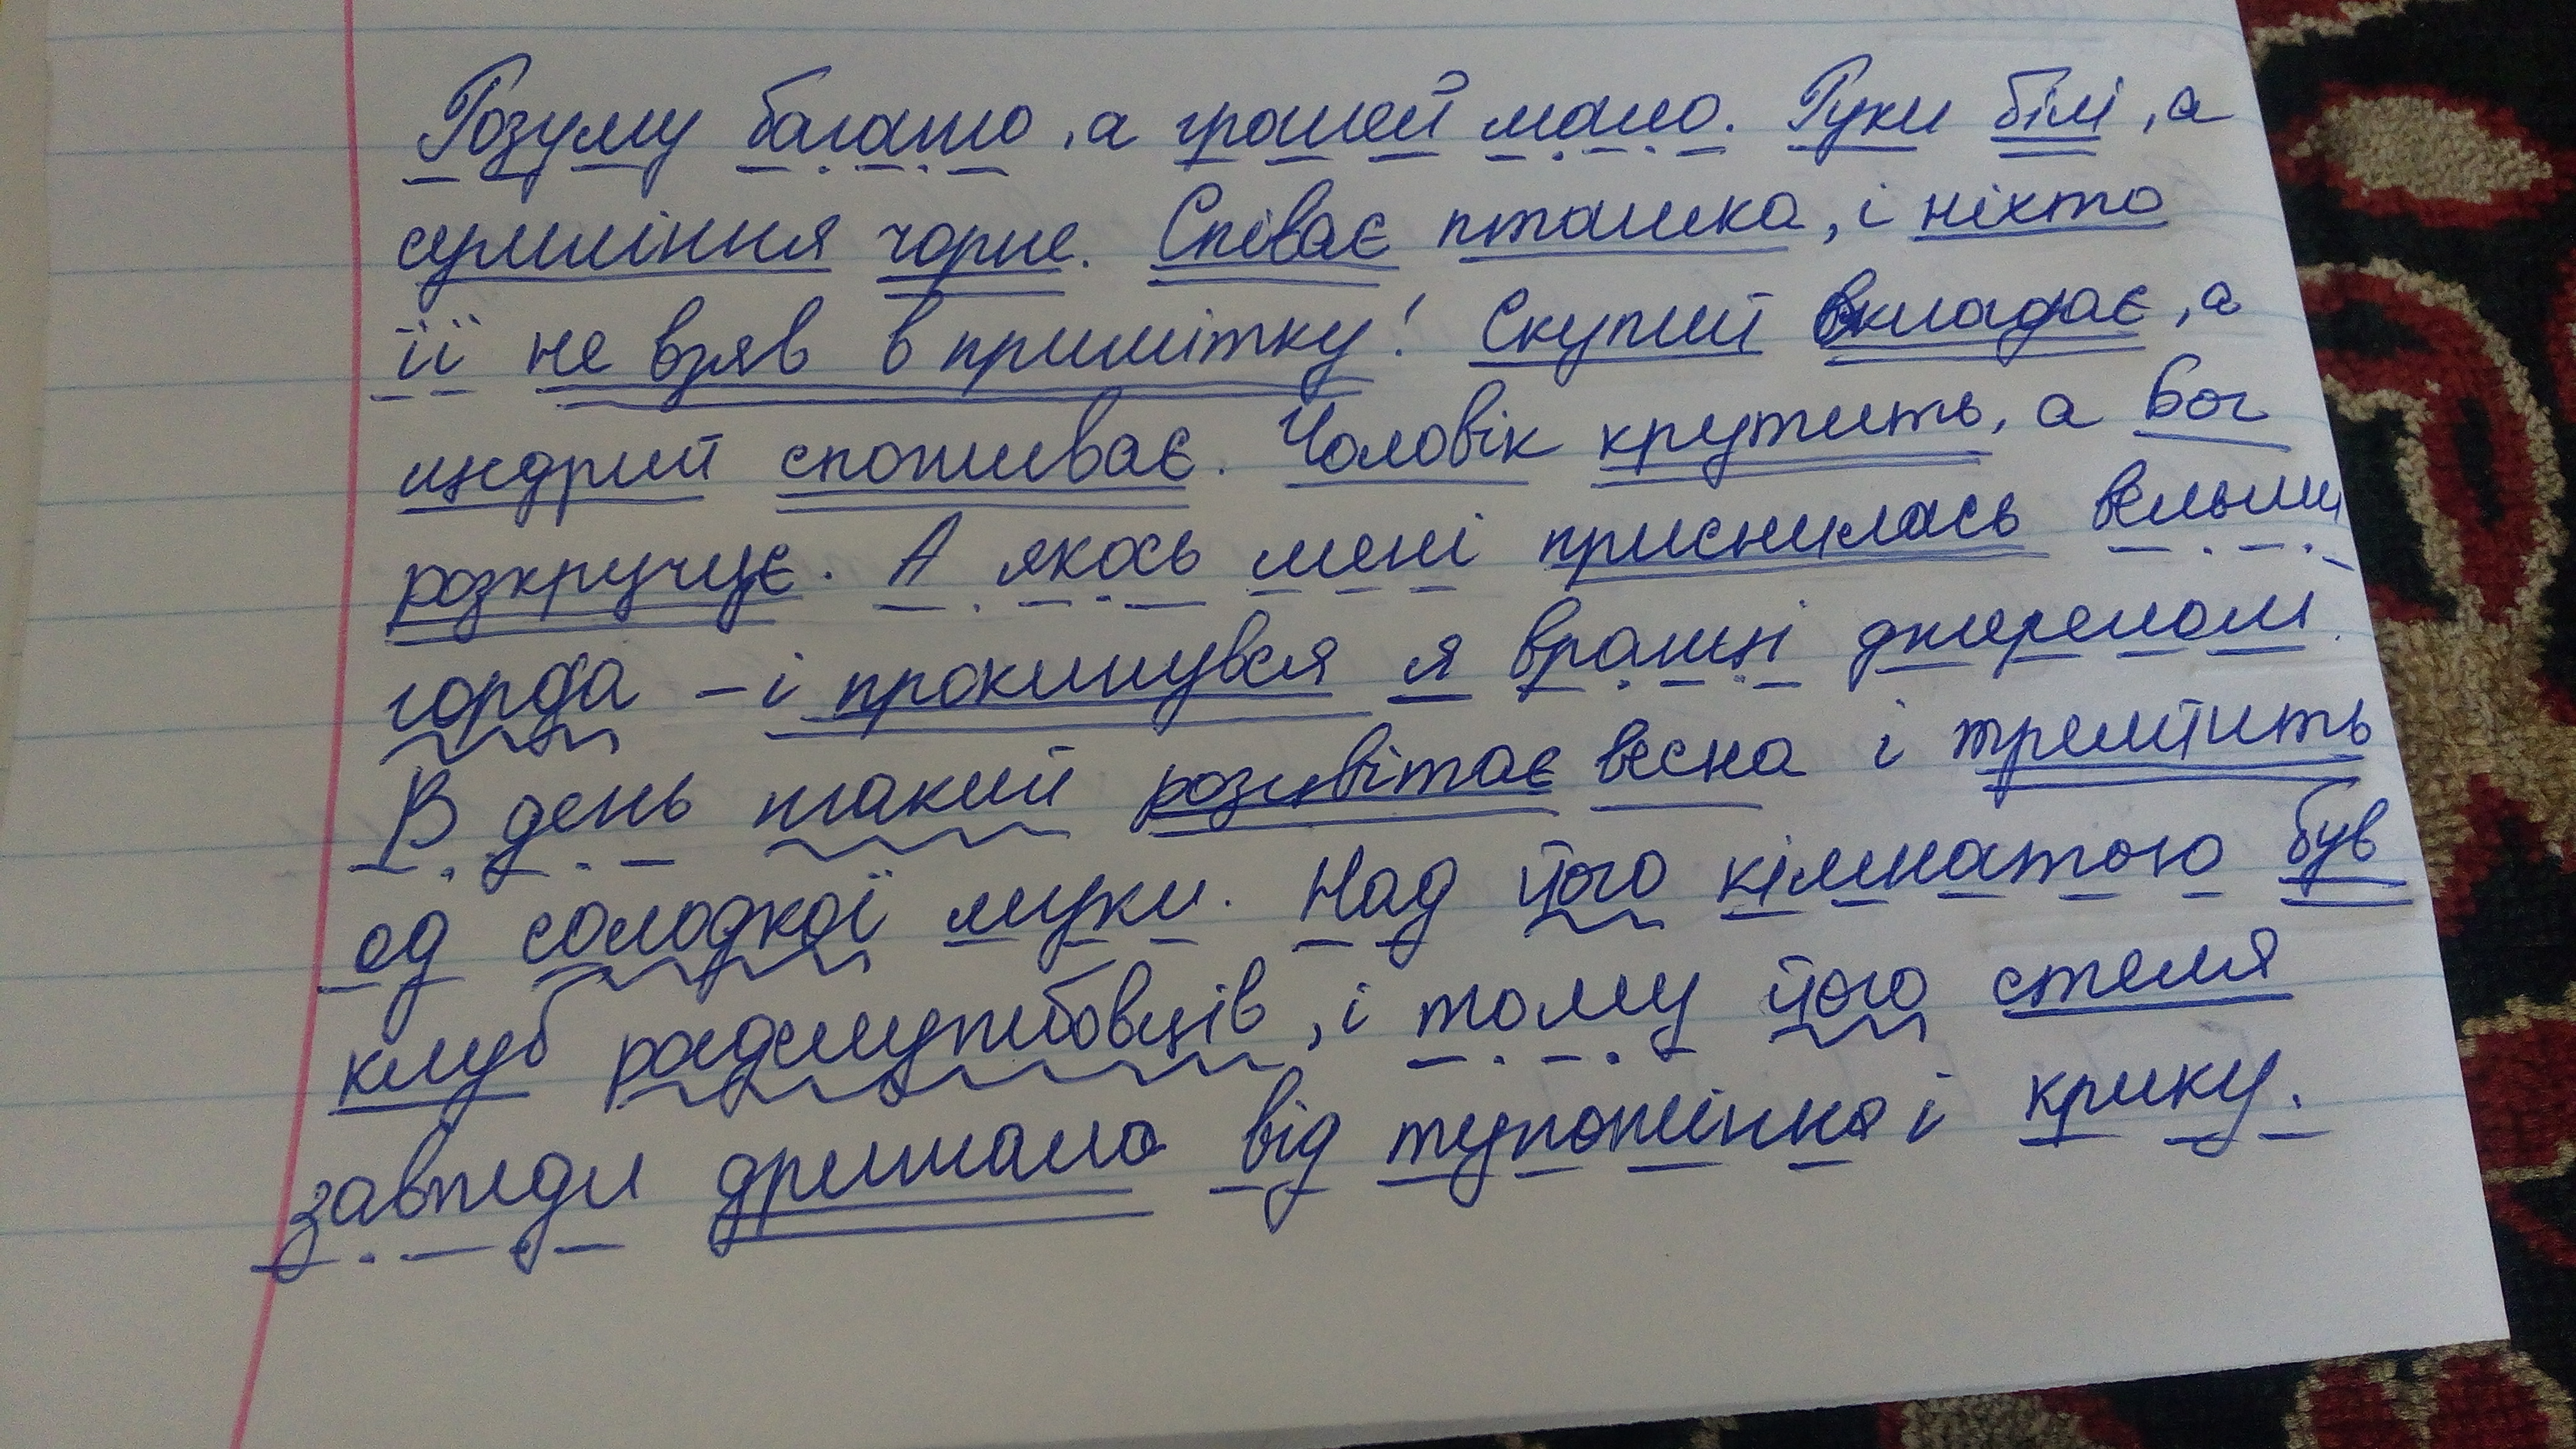 Розуму багато, а грошей мало. Руки білі, а
сумління чорне. Співає пташка, і ніхто
її не взяв в примітку! Скупий вкладає, а
щедрий споживає. Чоловік крутить, а Бог
розкручує. А якось мені приснилась вельми
горда – і прокинувся я вранці джерелом.
В день такий розцвітає весна і тремтить
од солодкої муки. Над його кімнатою був
клуб радслужбовців, і тому його стеля
завжди дрижала від тупотіння і крику.